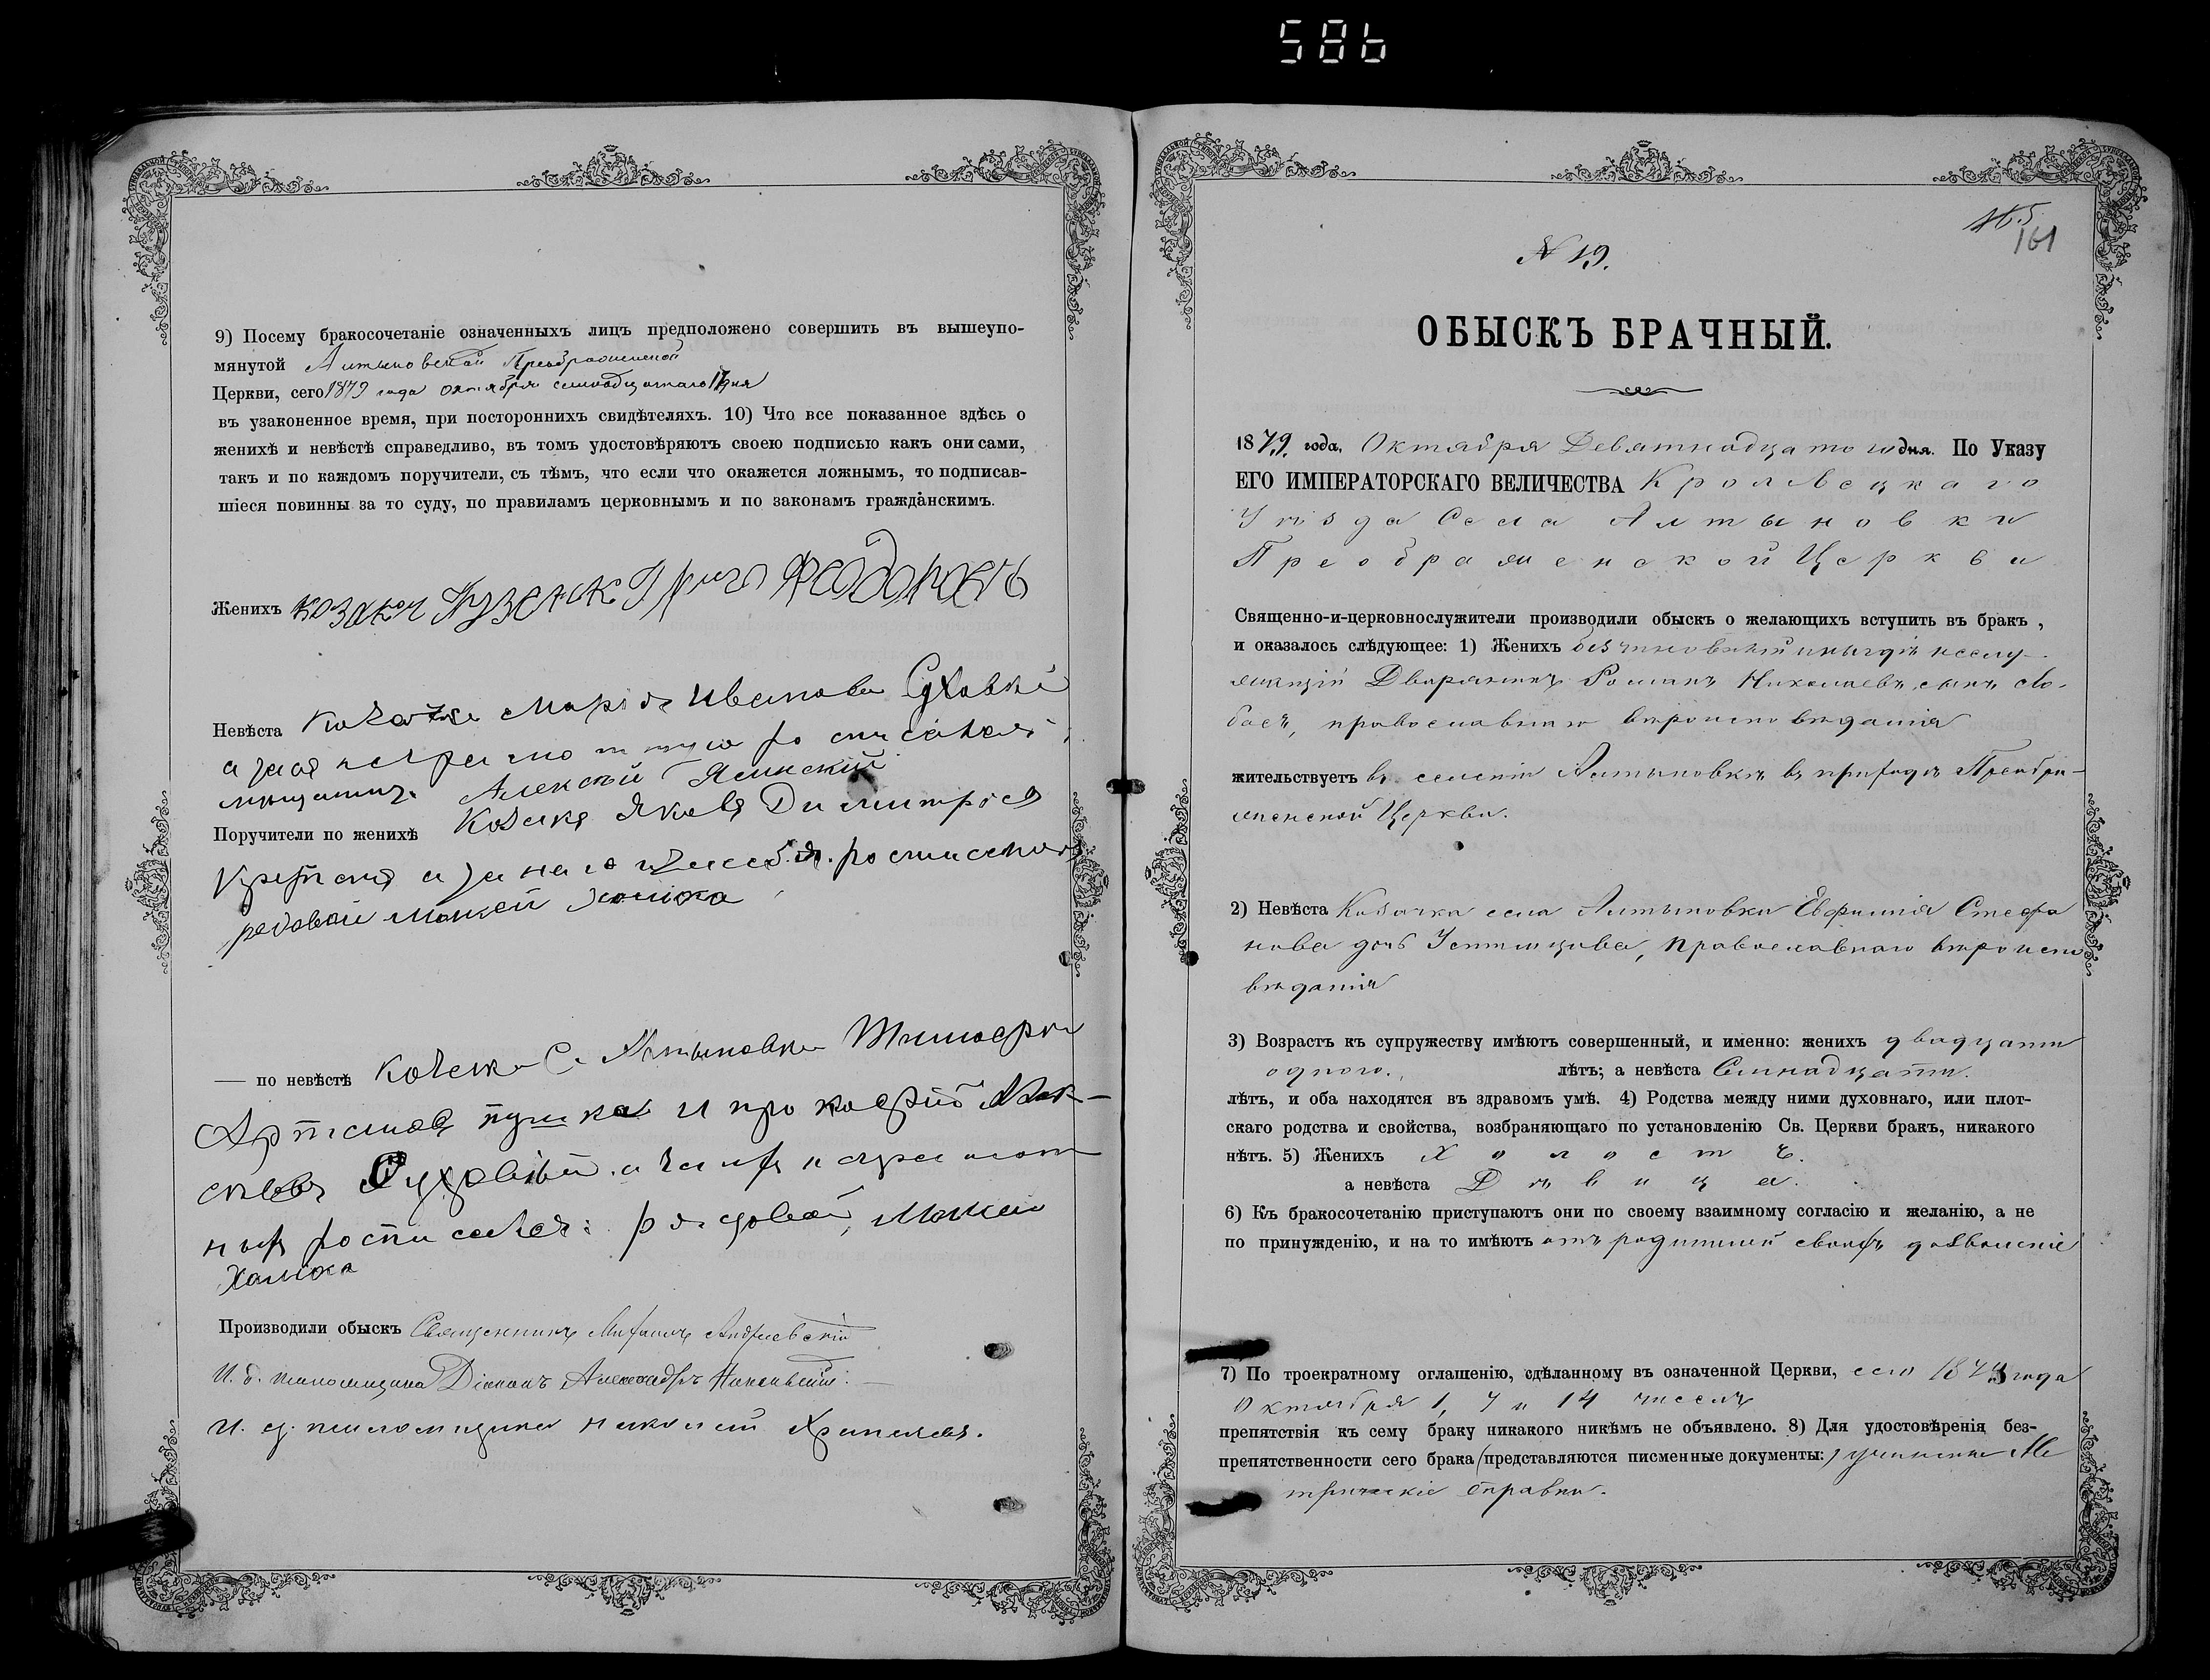 586
9) Посему бракосочетаніе означенныхъ лицъ предположено совершить въ вышеупо-
мянутой Алтыновской Преображенской
Церкви, сего 1879 года октября семнадцатаго 17 дня
въ узаконенное время, при постороннихъ свидѣтеляхъ. 10) Что все показанное здѣсь о
женихѣ и невѣстѣ справедливо, въ томъ удостовѣряютъ своею подписью какъ они сами,
такъ и по каждомъ поручители, съ тѣмъ, что если что окажется ложнымъ, то подписав-
шіеся повинны за то суду, по правиламъ церковнымъ и по законамъ гражданскимъ.
Женихъ козакъ
Невѣста Козачка Марія Иванова
а за
мещанинъ Алексѣй Ясинскій
Поручители по женихѣ Козакъ Яковъ Димитріев
а за него росписался
редовой Мокей
— по невѣстѣ Козаки С. Алтыновки Тимофей
Артемов и прокофій
неграмот
ныхъ росписался: рядовой, Мокей
Производили обыскъ Священникъ Михаилъ Андріевскій
И. д. псаломщика Діаконъ Александръ
И. д. псаломщика Николай
165
161
N 19.
ОБЫСКЪ БРАЧНЫЙ.
1879 года, Октября Девятнадцатого дня. По Указу
ЕГО ИМПЕРАТОРСКАГО ВЕЛИЧЕСТВА Кролевецкаго
Уѣзда Села Алтыновки
Преображенской Церкви
Священно-и-церковнослужители производили обыскъ о желающихъ вступить въ бракъ ,
и оказалось слѣдующее: 1) Женихъ нигдѣ неслу-
жащій Дворянинъ Романъ Николаевъ сынъ Сло-
боєв, православнаго вѣроисповѣданія
жительствуетъ въ селеніи Алтыновкѣ въ приходѣ Преобра-
женской Церкви.
2) Невѣста Козачка села Алтыновки Евфимія Стефа
нова дочь Устимцова, православнаго вѣроиспо
вѣданія
3) Возрастъ къ супружеству имѣютъ совершенный, и именно: женихъ двадцати
одного. лѣтъ; а невѣста Семнадцати.
лѣтъ, и оба находятся въ здравомъ умѣ. 4) Родства между ними духовнаго, или плот-
скаго родства и свойства, возбраняющаго по установленію Св. Церкви бракъ, никакого
нѣтъ. 5) Женихъ Холостъ.
а невѣста Дѣвица.
6) Къ бракосочетанію приступаютъ они по своему взаимному согласію и желанію, а не
по принужденію, и на то имѣютъ отъ родителей своихъ дозволеніе
7) По троекратному оглашенію, сдѣланному въ означенной Церкви, сего 1879 года
Октября 1, 7 и 14 числъ
препятствія къ сему браку никакого никѣмъ не объявлено. 8) Для удостовѣренія без-
препятственности сего брака (представляются писменные документы:) учинены Ме
трическіе справки.